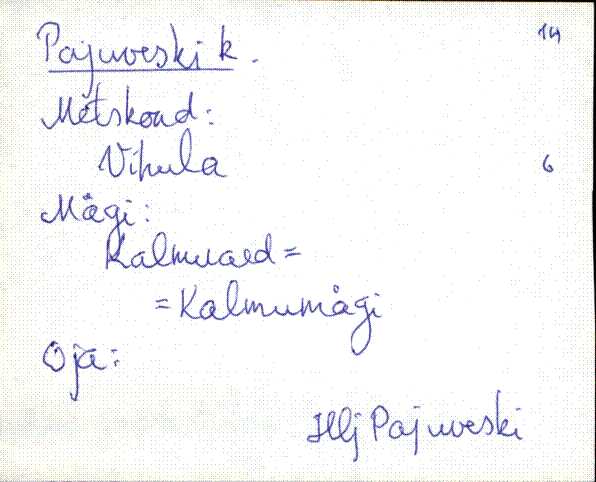 Pajuveski k. 14
Metskond:
Vihula 6
Mägi:
Kalmuaed =
= Kalmumägi
Oja:
Hlj Pajuveski